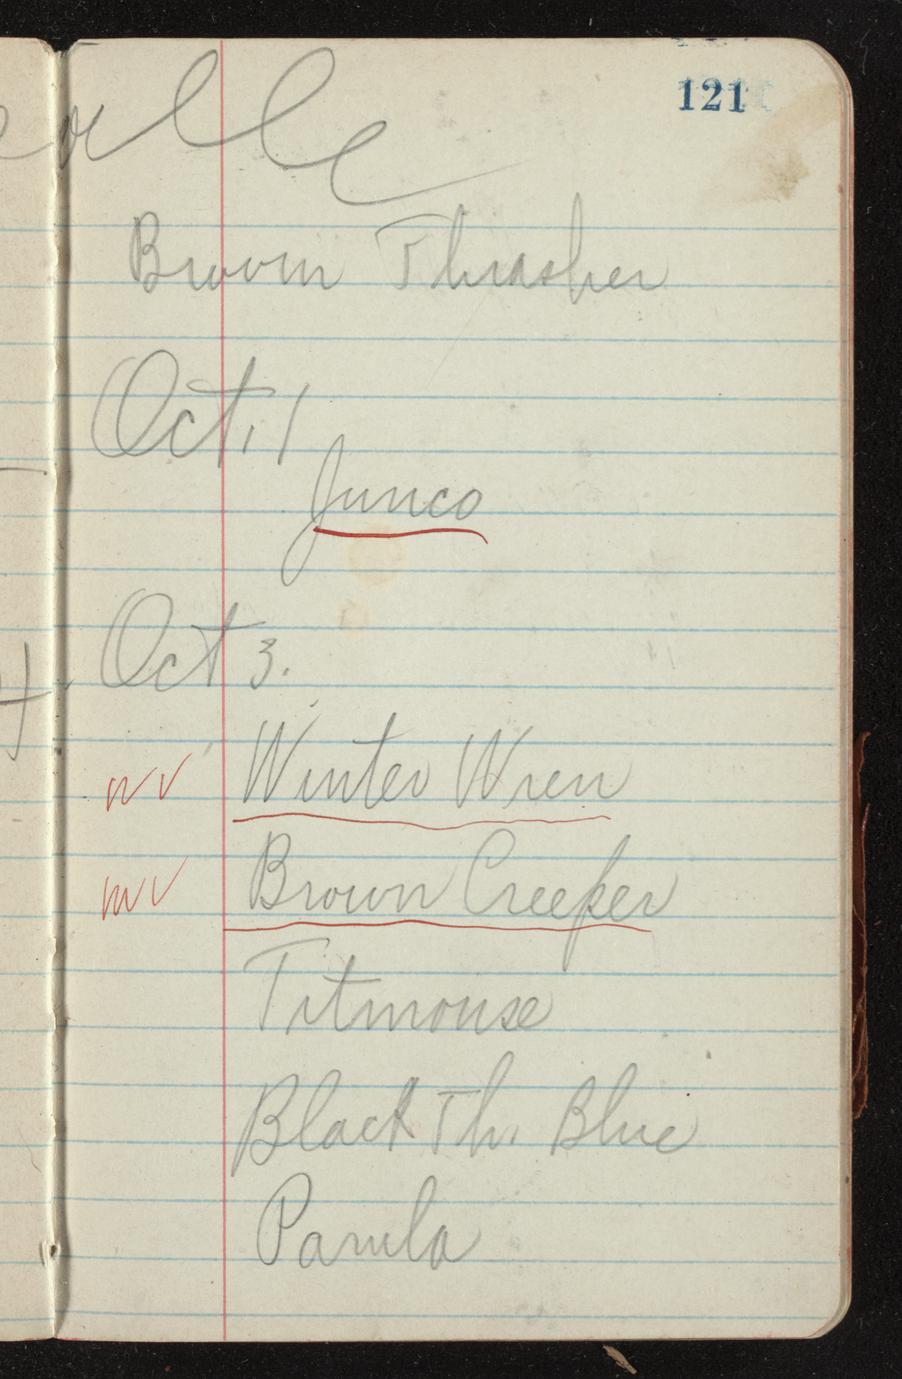 121
Brown Thrasher
Oct. 1
Junco
Oct 3.
WV Winter Wren
WV Brown Creeper
Titmouse
Black Th. Blue
Parula